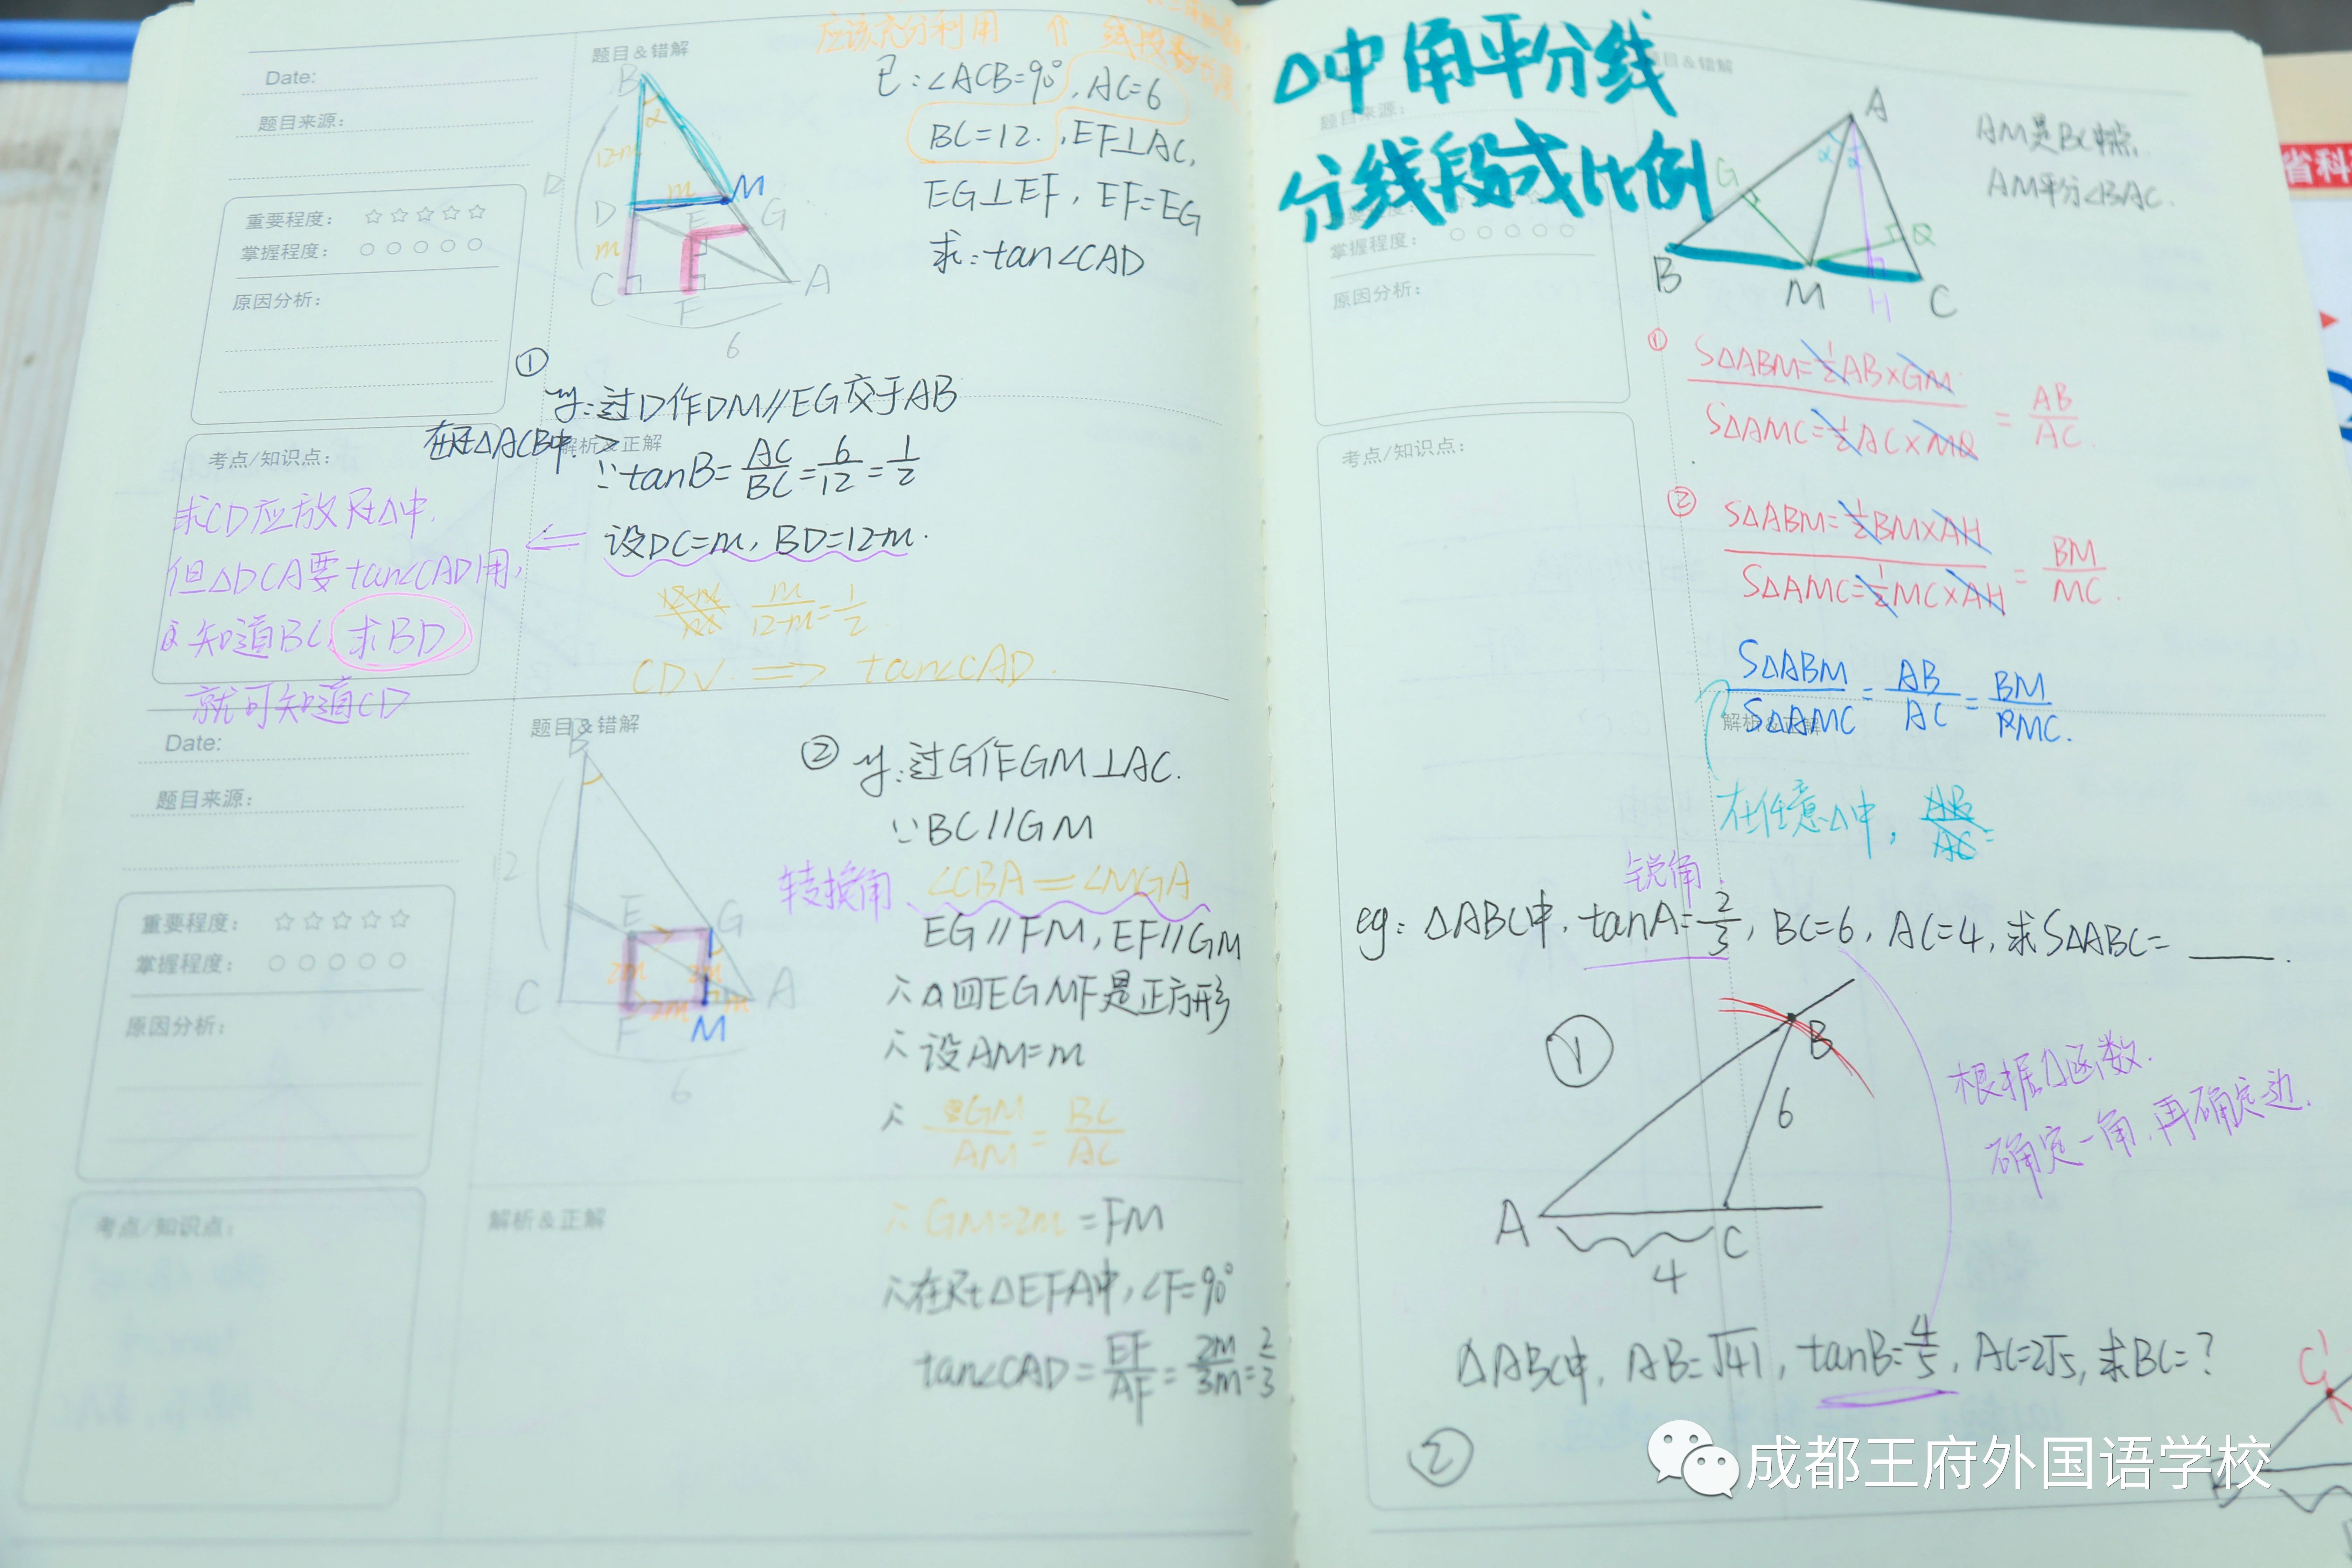 题目&错解
Date:
题目来源:
重要程度: ☆☆☆☆☆
掌握程度: ○○○○○
原因分析:
考点/知识点:
应该充分利用 ↑ 线段
B
α
12-m
D
m
M
D
E
G
m
C
F
A
6
已:∠ACB=90°, AC=6
BC=12. ,EF⊥AC,
EG⊥EF, EF=EG
求:tan∠CAD
①
过D作DM//EG交于AB
在Rt△ACB中.
解析&正解
∵tanB=AC/BC=6/12=1/2
设DC=m, BD=12-m.
m/12-m=1/2
CD√. ⇒ tan∠CAD.
求CD应放Rt△中,
但△DCA要tan∠CAD用,
知道BC,求BD
就可知道CD
题目&错解
Date:
题目来源:
重要程度: ☆☆☆☆☆
掌握程度: ○○○○○
原因分析:
考点/知识点:
解析&正解
B
12
E
G
C
A
2m
2m
2m
m
F
M
6
② 过G作GM⊥AC.
∵BC//GM
转换角、∠CBA=∠MGA
EG//FM, EF//GM
∴四EGMF是正方形
∴设AM=m
∴ GM/AM=BC/AC
∴GM=2m=FM
∴在Rt△EFA中,∠F=90°
tan∠CAD=EF/AF=2m/3m=2/3
△中角平分线
分线段成比例
题目&错解
题目来源:
重要程度:
掌握程度: ○○○○○
原因分析:
考点/知识点:
A
α
α
G
Q
B
M
H
C
AM是BC中点,
AM平分∠BAC.
① S△ABM=1/2AB×GM
S△AMC=1/2AC×MQ
=AB/AC.
② S△ABM=1/2BM×AH
S△AMC=1/2MC×AH
=BM/MC.
S△ABM/S△AMC=AB/AC=BM/MC.
解析&正解
在任意△中, AB/AC=
锐角.
eg: △ABC中, tanA=2/3, BC=6, AC=4, 求S△ABC=____.
①
B
6
A
C
4
根据△函数.
确定一角,再确定边.
△ABC中, AB=√41, tanB=4/5, AC=2√5, 求BC=?
②
C'
B
成都王府外国语学校
省科